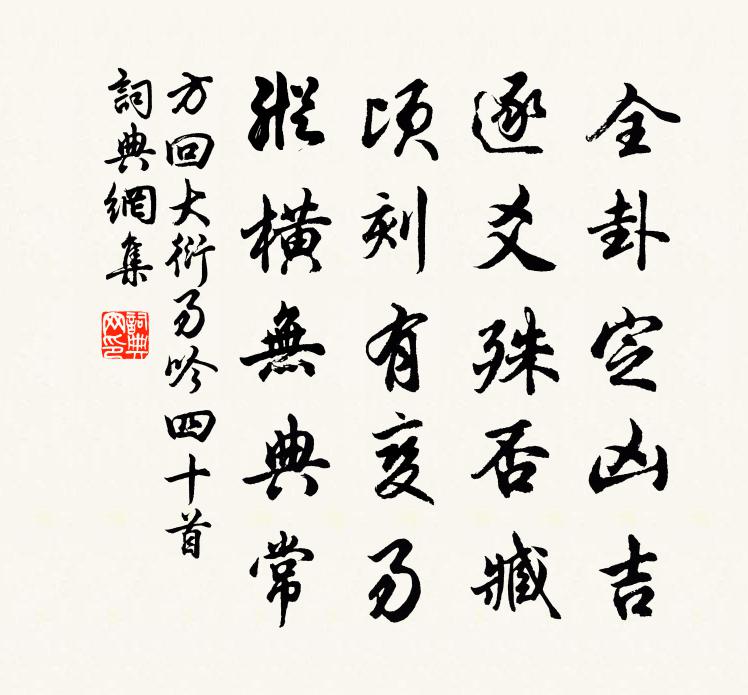 全卦定凶吉
逐爻殊否臧
頃刻有變易
縱橫無典常
方回大衍易吟四十首
詞典網集
詞典網印